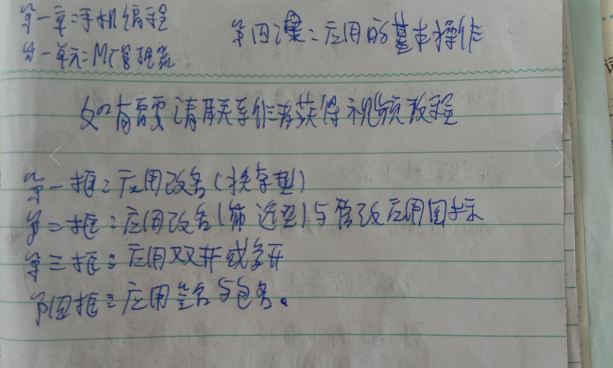 第一章:手机编程
第一单元:MT管理器
第四课:应用的基本操作
如有需要请联系作者获得视频教程
第一框:应用改名(换字型)
第二框:应用改名(筛选型)与修改应用图标
第三框:应用双开或多开
第四框:应用签名与包名。